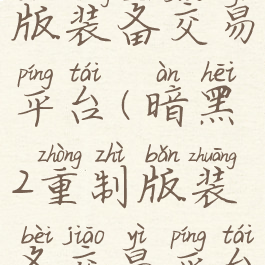 版装备交易
píng tái àn hēi
平台(暗黑
zhòng zhì bǎn zhuāng
2重制版装
bèi jiāo yì píng tái
备交易平台